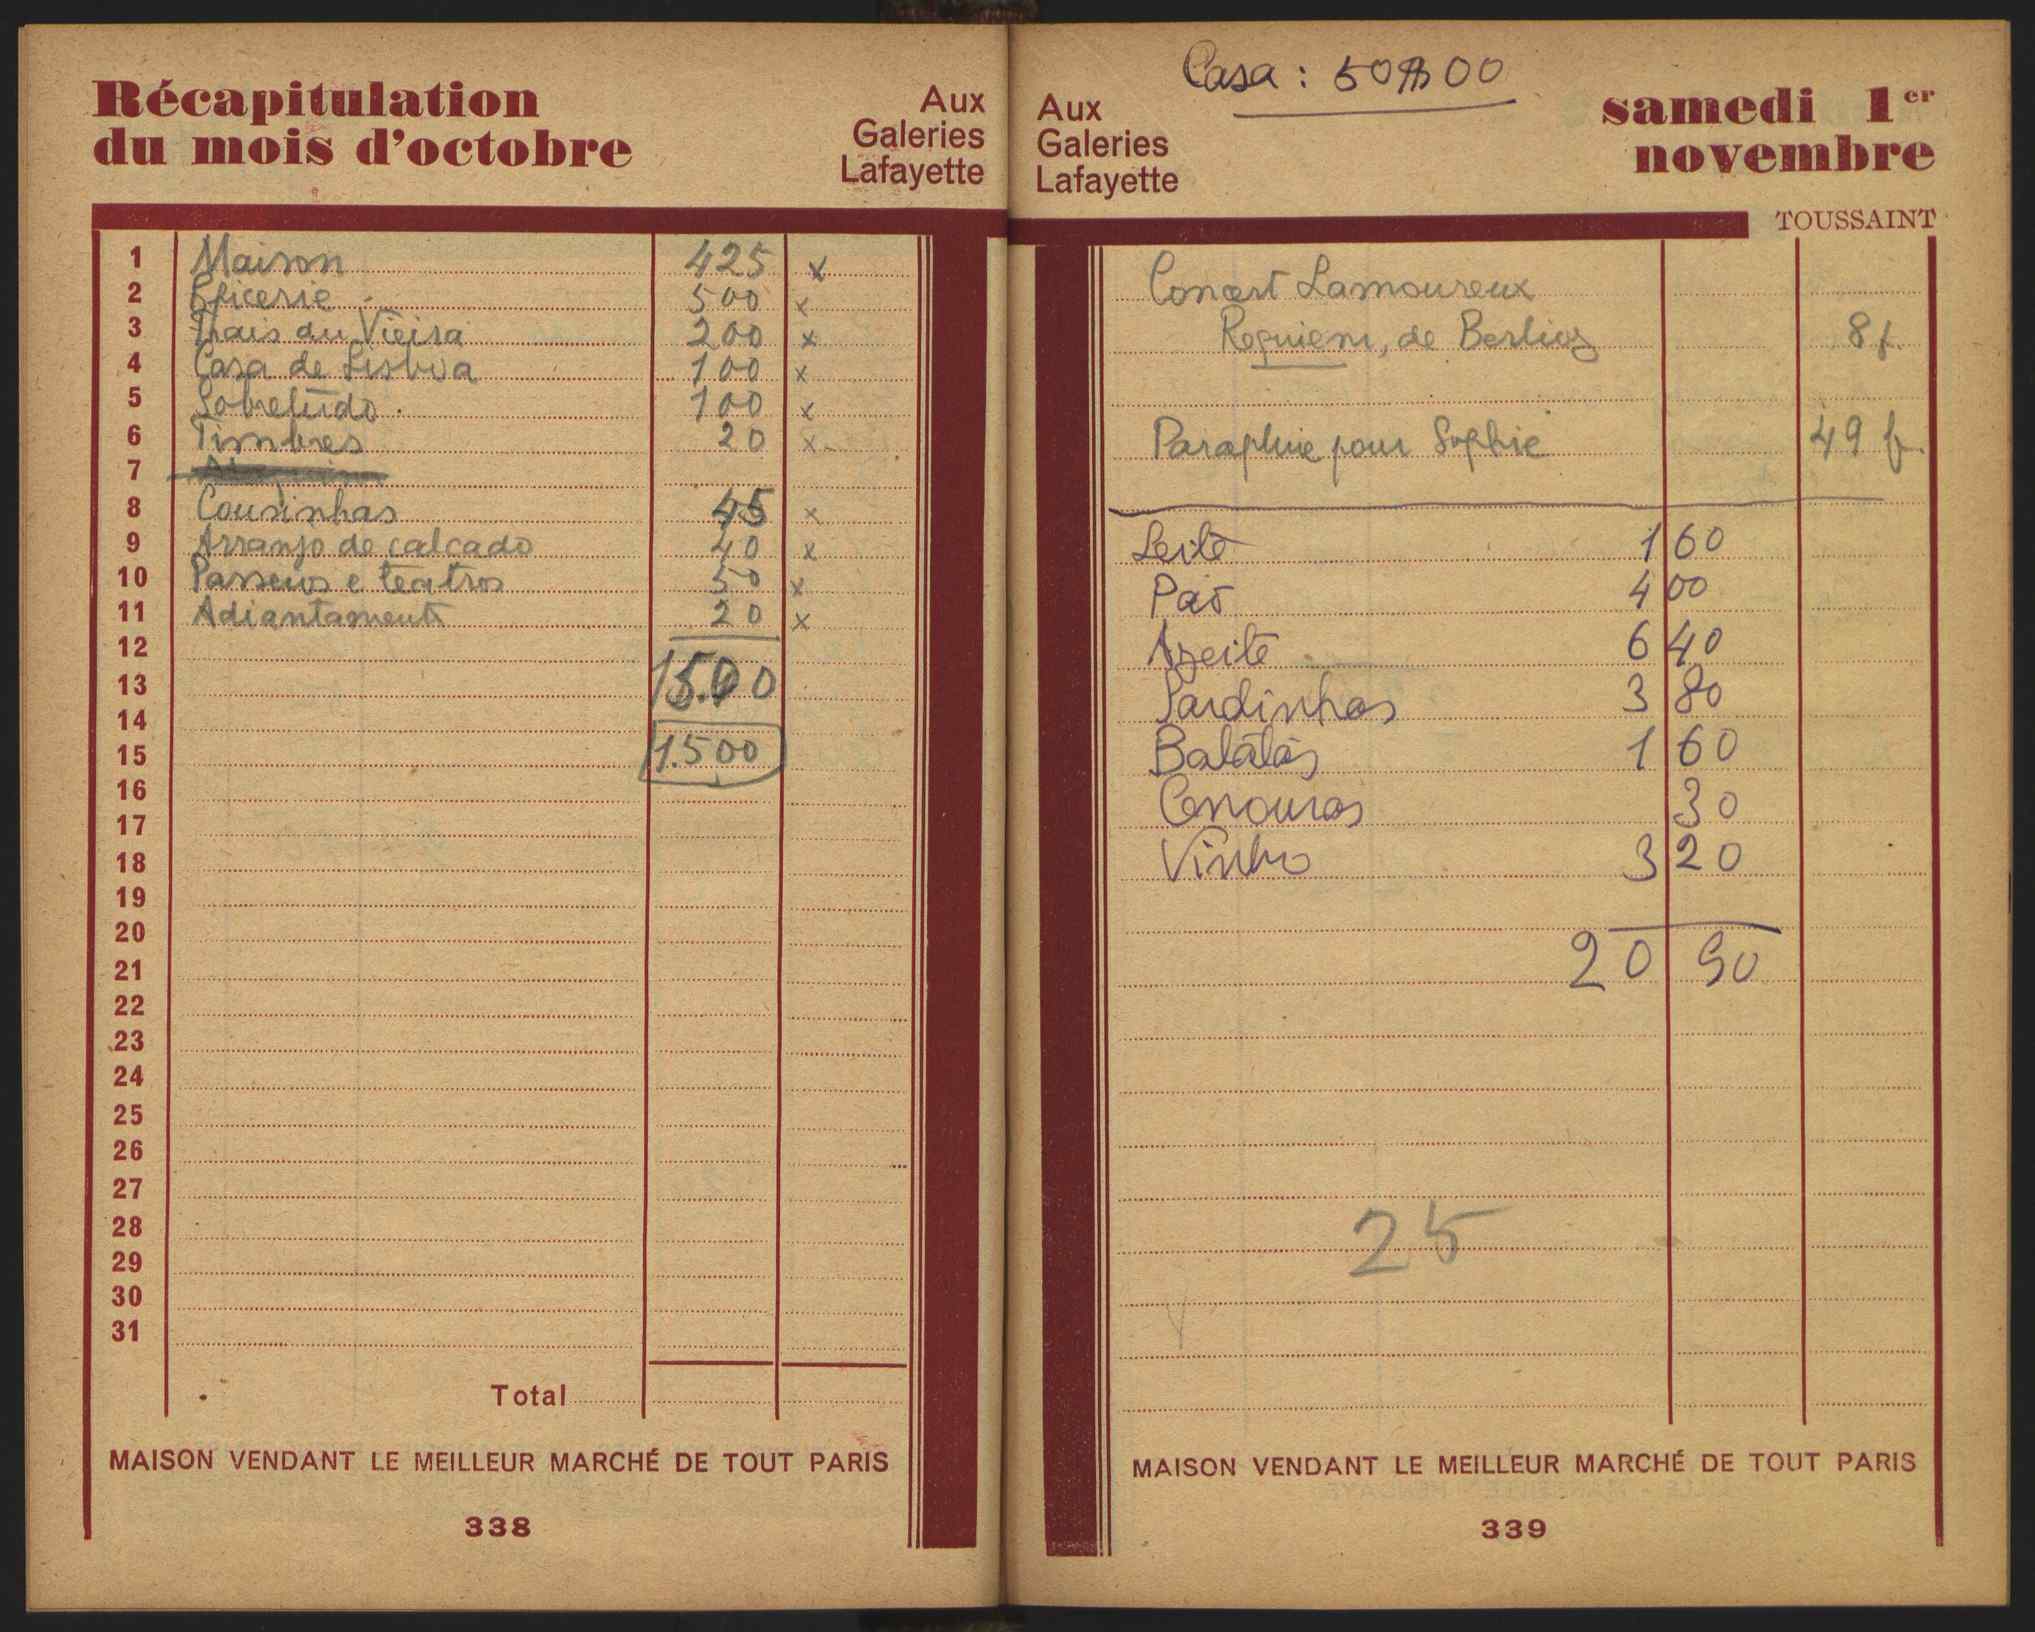 Récapitulation
du mois d'octobre
Aux
Galeries
Lafayette
1 Maison 425 x
2 Epicerie 500 x
3 Frais du Vieira 200 x
4 Casa de Lisboa 100 x
5 Sobretudo. 100 x
6 Timbres 20 x
7
8 Cousinhas 45 x
9 Arranjo de calcado 40 x
10 Passeios e teatros 50 x
11 Adiantamento 20 x
12
13 15.00
14
15 1.500
16
17
18
19
20
21
22
23
24
25
26
27
28
29
30
31
Total
MAISON VENDANT LE MEILLEUR MARCHÉ DE TOUT PARIS
338
Casa : 50$00
Aux
Galeries
Lafayette
samedi 1er
novembre
TOUSSAINT
Concert Lamoureux
Requiem, de Berlioz 8 f.
Parapluie pour Sophie 49 fr.
Leite 1 60
Pão 4 00
Azeite 6 40
Sardinhas 3 80
Batatas 1 60
Cenouras 30
Vinho 3 20
20 90
25
MAISON VENDANT LE MEILLEUR MARCHÉ DE TOUT PARIS
339